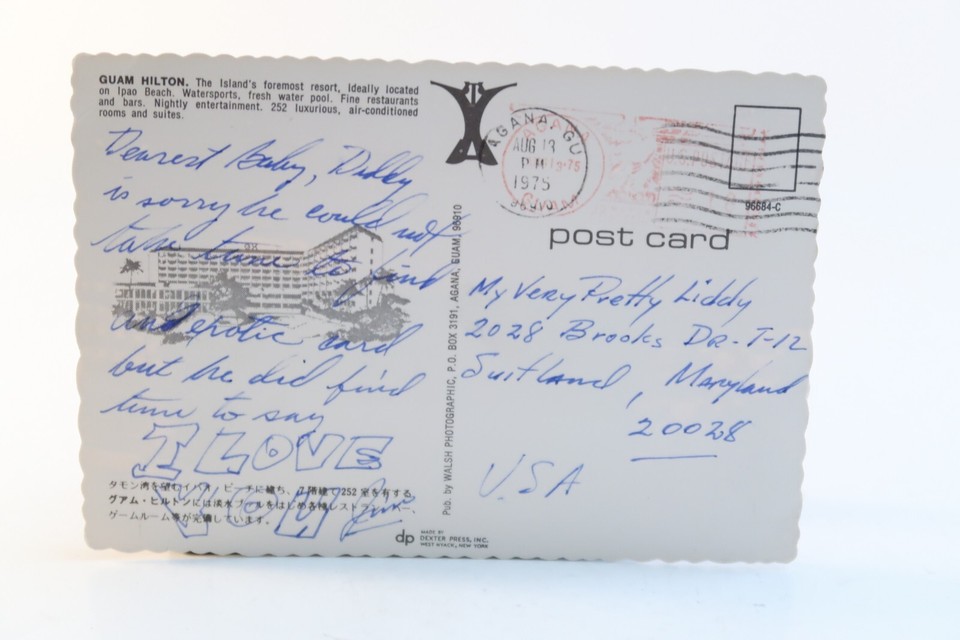 GUAM HILTON. The Island's foremost resort, ideally located
on Ipao Beach. Watersports, fresh water pool. Fine restaurants
and bars. Nightly entertainment. 252 luxurious, air-conditioned
rooms and suites.
Dearest Baby, Diddy
is sorry he could not
take time to find
and erotic card
but he did find
time to say
I LOVE
YOU
タモン湾を望むイパオ・ビーチに建ち、7階建て252室を有する
グアム・ヒルトンには淡水プールをはじめ各種レストラン・バー、
ゲームルーム等が完備しています。
Pub. by WALSH PHOTOGRAPHIC, P.O. BOX 3191, AGANA, GUAM, 96910
dp
MADE BY
DEXTER PRESS, INC.
WEST NYACK, NEW YORK
AGANA, GU
AUG 13
PM
1975
AGANA
GUAM
96684-C
post card
My Very Pretty Liddy
2028 Brooks Dr. T-12
Suitland, Maryland
20028
USA